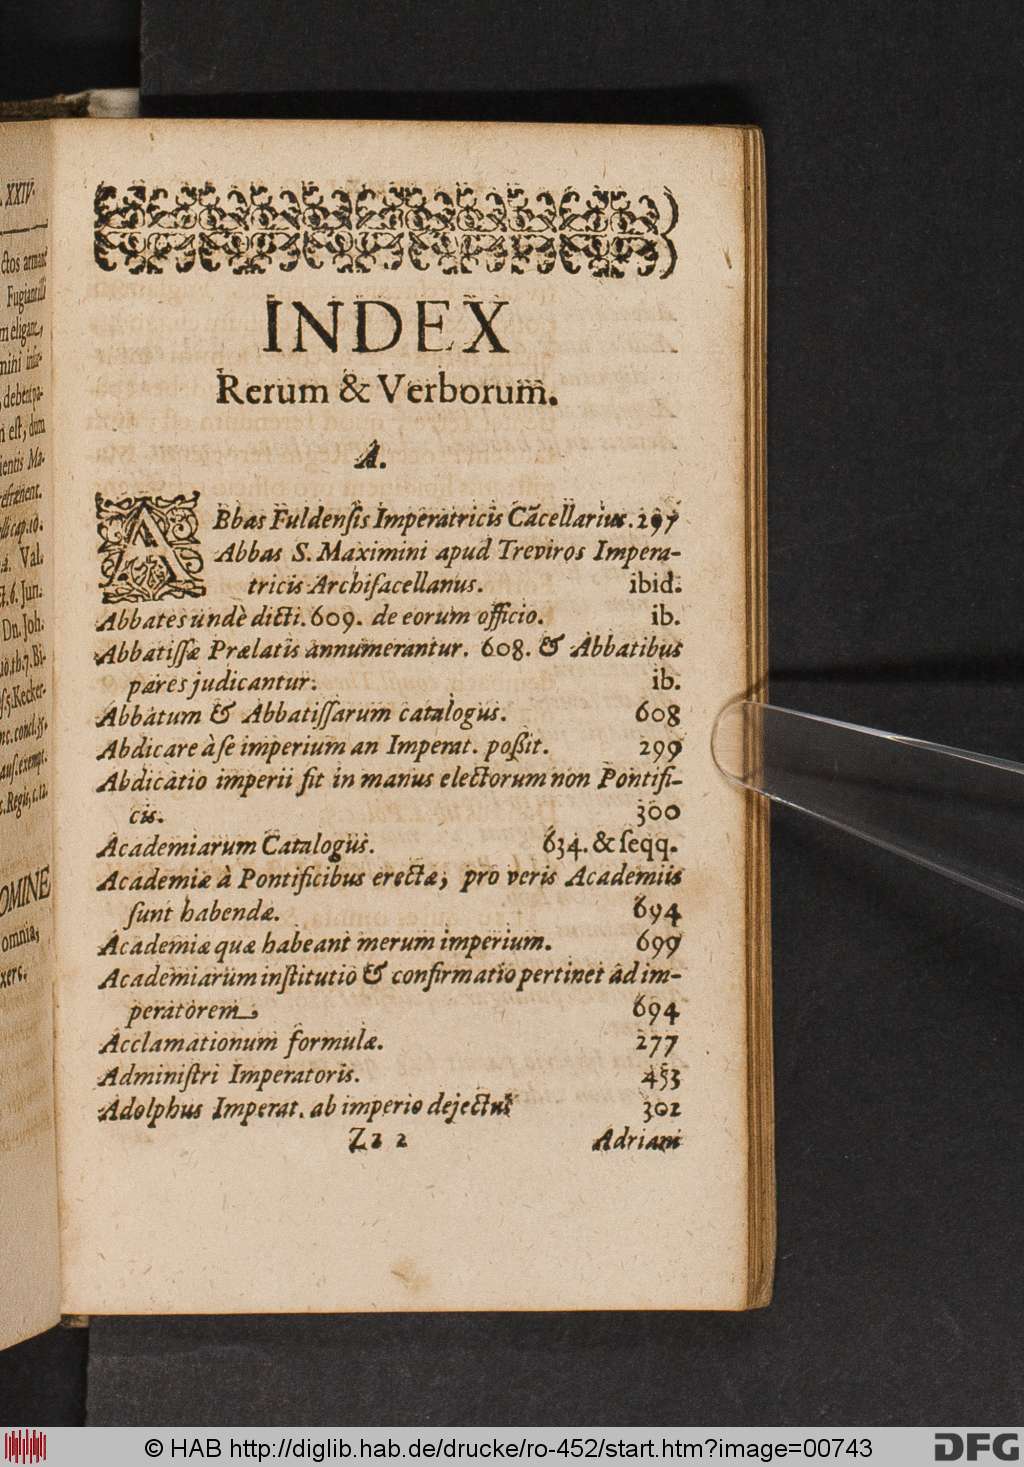 XXIV.
ctos armant
Fugiant illi
m eligant,
mihi
debent pa-
ri est, dum
ientis Ma-
cap. 10.
Val.
6. Jun.
Dn. Joh.
Kecker-
concl. 55.
exempt.
Regis, c. 12.
OMINE
omnia,
xere.
INDEX
Rerum & Verborum.
A.
ABbas Fuldensis Imperatricis Cãcellarius. 297
Abbas S. Maximini apud Treviros Impera-
tricis Archisacellanus. ibid.
Abbates undè dicti. 609. de eorum officio. ib.
Abbatissæ Prælatis annumerantur. 608. & Abbatibus
pares judicantur. ib.
Abbatum & Abbatissarum catalogus. 608
Abdicare à se imperium an Imperat. poßit. 299
Abdicatio imperii fit in manus electorum non Pontifi-
cis. 300
Academiarum Catalogus. 634. & seqq.
Academiæ à Pontificibus erectæ, pro veris Academiis
sunt habendæ. 694
Academiæ quæ habeant merum imperium. 699
Academiarum institutio & confirmatio pertinet ad im-
peratorem, 694
Acclamationum formulæ. 277
Administri Imperatoris. 453
Adolphus Imperat. ab imperio dejectus 302
Zz 2 Adriani
© HAB http://diglib.hab.de/drucke/ro-452/start.htm?image=00743
DFG